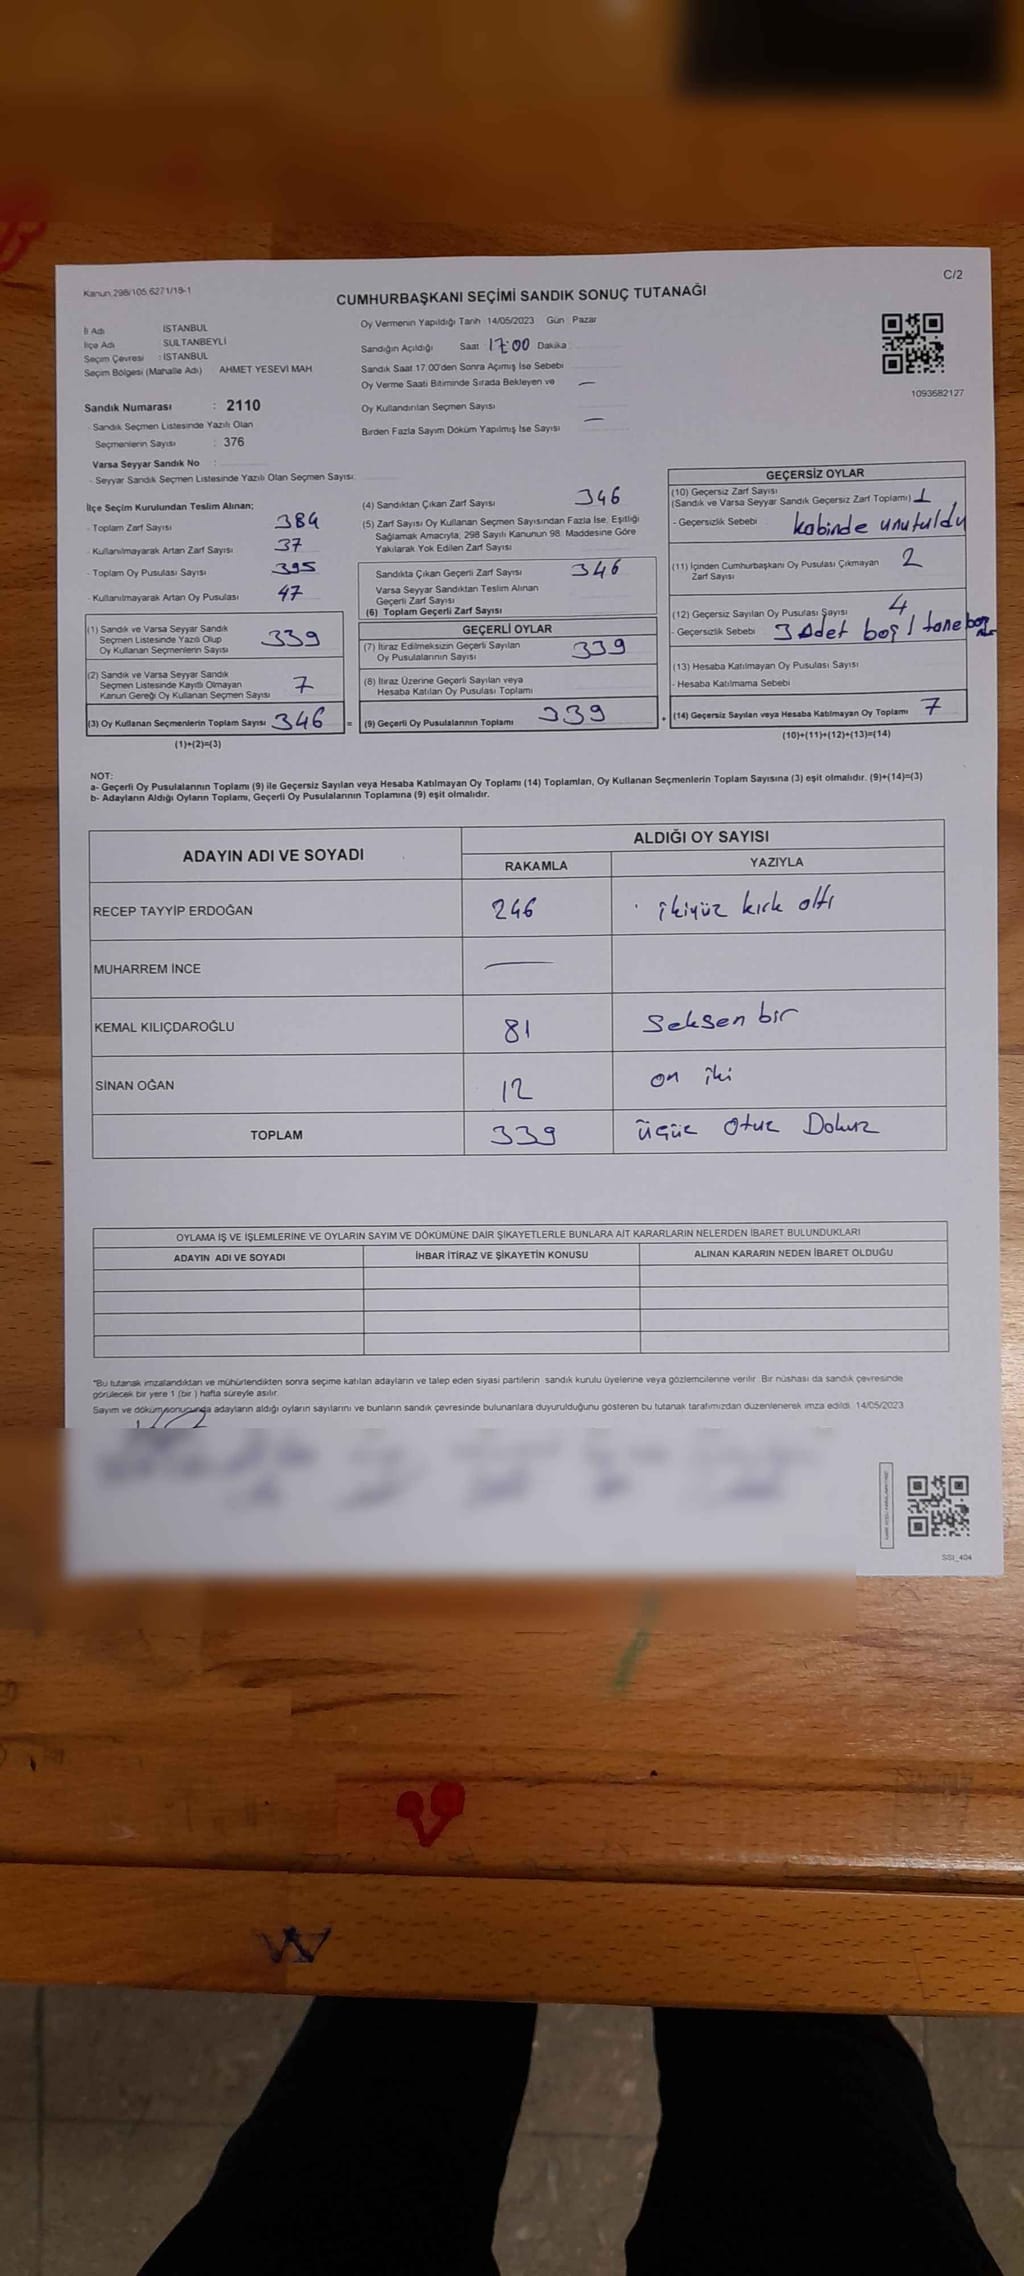 Kanun 298/105,6271/18-1
C/2
CUMHURBAŞKANI SEÇİMİ SANDIK SONUÇ TUTANAĞI
İl Adı İSTANBUL
İlçe Adı SULTANBEYLİ
Seçim Çevresi : İSTANBUL
Seçim Bölgesi (Mahalle Adı) AHMET YESEVİ MAH
Sandık Numarası : 2110
- Sandık Seçmen Listesinde Yazılı Olan
Seçmenlerin Sayısı : 376
Varsa Seyyar Sandık No :
- Seyyar Sandık Seçmen Listesinde Yazılı Olan Seçmen Sayısı:
Oy Vermenin Yapıldığı Tarih 14/05/2023 Gün Pazar
Sandığın Açıldığı Saat 17:00 Dakika
Sandık Saat 17.00'den Sonra Açımış İse Sebebi
Oy Verme Saati Bitiminde Sırada Bekleyen ve —
Oy Kullandırılan Seçmen Sayısı
Birden Fazla Sayım Döküm Yapılmış İse Sayısı —
1093682127
İlçe Seçim Kurulundan Teslim Alınan;
- Toplam Zarf Sayısı 384
- Kullanılmayarak Artan Zarf Sayısı 37
- Toplam Oy Pusulası Sayısı 395
- Kullanılmayarak Artan Oy Pusulası 47
(1) Sandık ve Varsa Seyyar Sandık
Seçmen Listesinde Yazılı Olup
Oy Kullanan Seçmenlerin Sayısı 339
(2) Sandık ve Varsa Seyyar Sandık
Seçmen Listesinde Kayıtlı Olmayan
Kanun Gereği Oy Kullanan Seçmen Sayısı 7
(3) Oy Kullanan Seçmenlerin Toplam Sayısı 346 =
(1)+(2)=(3)
(4) Sandıktan Çıkan Zarf Sayısı 346
(5) Zarf Sayısı Oy Kullanan Seçmen Sayısından Fazla İse, Eşitliği
Sağlamak Amacıyla, 298 Sayılı Kanunun 98. Maddesine Göre
Yakılarak Yok Edilen Zarf Sayısı
Sandıkta Çıkan Geçerli Zarf Sayısı 346
Varsa Seyyar Sandıktan Teslim Alınan
Geçerli Zarf Sayısı
(6) Toplam Geçerli Zarf Sayısı
GEÇERLİ OYLAR
(7) İtiraz Edilmeksizin Geçerli Sayılan
Oy Pusulalarının Sayısı 339
(8) İtiraz Üzerine Geçerli Sayılan veya
Hesaba Katılan Oy Pusulası Toplamı
(9) Geçerli Oy Pusulalarının Toplamı 339 +
GEÇERSİZ OYLAR
(10) Geçersiz Zarf Sayısı
(Sandık ve Varsa Seyyar Sandık Geçersiz Zarf Toplamı) 1
- Geçersizlik Sebebi kabinde unutuldu
(11) İçinden Cumhurbaşkanı Oy Pusulası Çıkmayan 2
Zarf Sayısı
(12) Geçersiz Sayılan Oy Pusulası Sayısı 4
- Geçersizlik Sebebi 3 Adet boş 1 tane
(13) Hesaba Katılmayan Oy Pusulası Sayısı
- Hesaba Katılmama Sebebi
(14) Geçersiz Sayılan veya Hesaba Katılmayan Oy Toplamı 7
(10)+(11)+(12)+(13)=(14)
NOT:
a- Geçerli Oy Pusulalarının Toplamı (9) ile Geçersiz Sayılan veya Hesaba Katılmayan Oy Toplamı (14) Toplamları, Oy Kullanan Seçmenlerin Toplam Sayısına (3) eşit olmalıdır. (9)+(14)=(3)
b- Adayların Aldığı Oyların Toplamı, Geçerli Oy Pusulalarının Toplamına (9) eşit olmalıdır.
ADAYIN ADI VE SOYADI ALDIĞI OY SAYISI
RAKAMLA YAZIYLA
RECEP TAYYİP ERDOĞAN 246 ikiyüz kırk altı
MUHARREM İNCE —
KEMAL KILIÇDAROĞLU 81 Seksen bir
SİNAN OĞAN 12 on iki
TOPLAM 339 üçüz Otuz Dokuz
OYLAMA İŞ VE İŞLEMLERİNE VE OYLARIN SAYIM VE DÖKÜMÜNE DAİR ŞİKAYETLERLE BUNLARA AİT KARARLARIN NELERDEN İBARET BULUNDUKLARI
ADAYIN ADI VE SOYADI İHBAR İTİRAZ VE ŞİKAYETİN KONUSU ALINAN KARARIN NEDEN İBARET OLDUĞU
*Bu tutanak imzalandıktan ve mühürlendikten sonra seçime katılan adayların ve talep eden siyasi partilerin sandık kurulu üyelerine veya gözlemcilerine verilir. Bir nüshası da sandık çevresinde
görülecek bir yere 1 (bir ) hafta süreyle asılır.
Sayım ve döküm sonucunda adayların aldığı oyların sayılarını ve bunların sandık çevresinde bulunanlara duyurulduğunu gösteren bu tutanak tarafımızdan düzenlenerek imza edildi. 14/05/2023
SSI_404
W